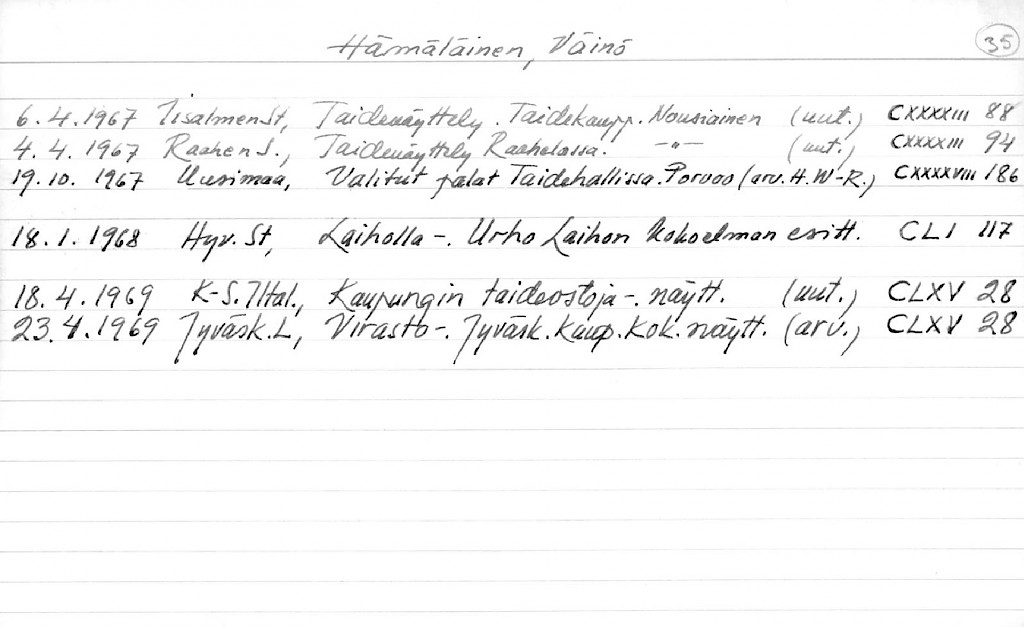 Hämäläinen, Väinö
35
6.4.1967 Iisalmen St, Taidenäyttely. Taidekaupp. Nousiainen (uut.) CXXXXIII 88
4.4.1967 Raahen S., Taidenäyttely Raahelassa. -"- (uut.) CXXXXIII 94
19.10.1967 Uusimaa, Valitut palat Taidehallissa. Porvoo (arv. H.W-R.) CXXXXVIII 186
18.1.1968 Hyv. St, Laiholla -. Urho Laihon kokoelman esitt. CLI 117
18.4.1969 K-S. Iltal., Kaupungin taideostoja -. näytt. (uut.) CLXV 28
23.4.1969 Jyväsk. L, Virasto -. Jyväsk. kaup. kok. näytt. (arv.) CLXV 28